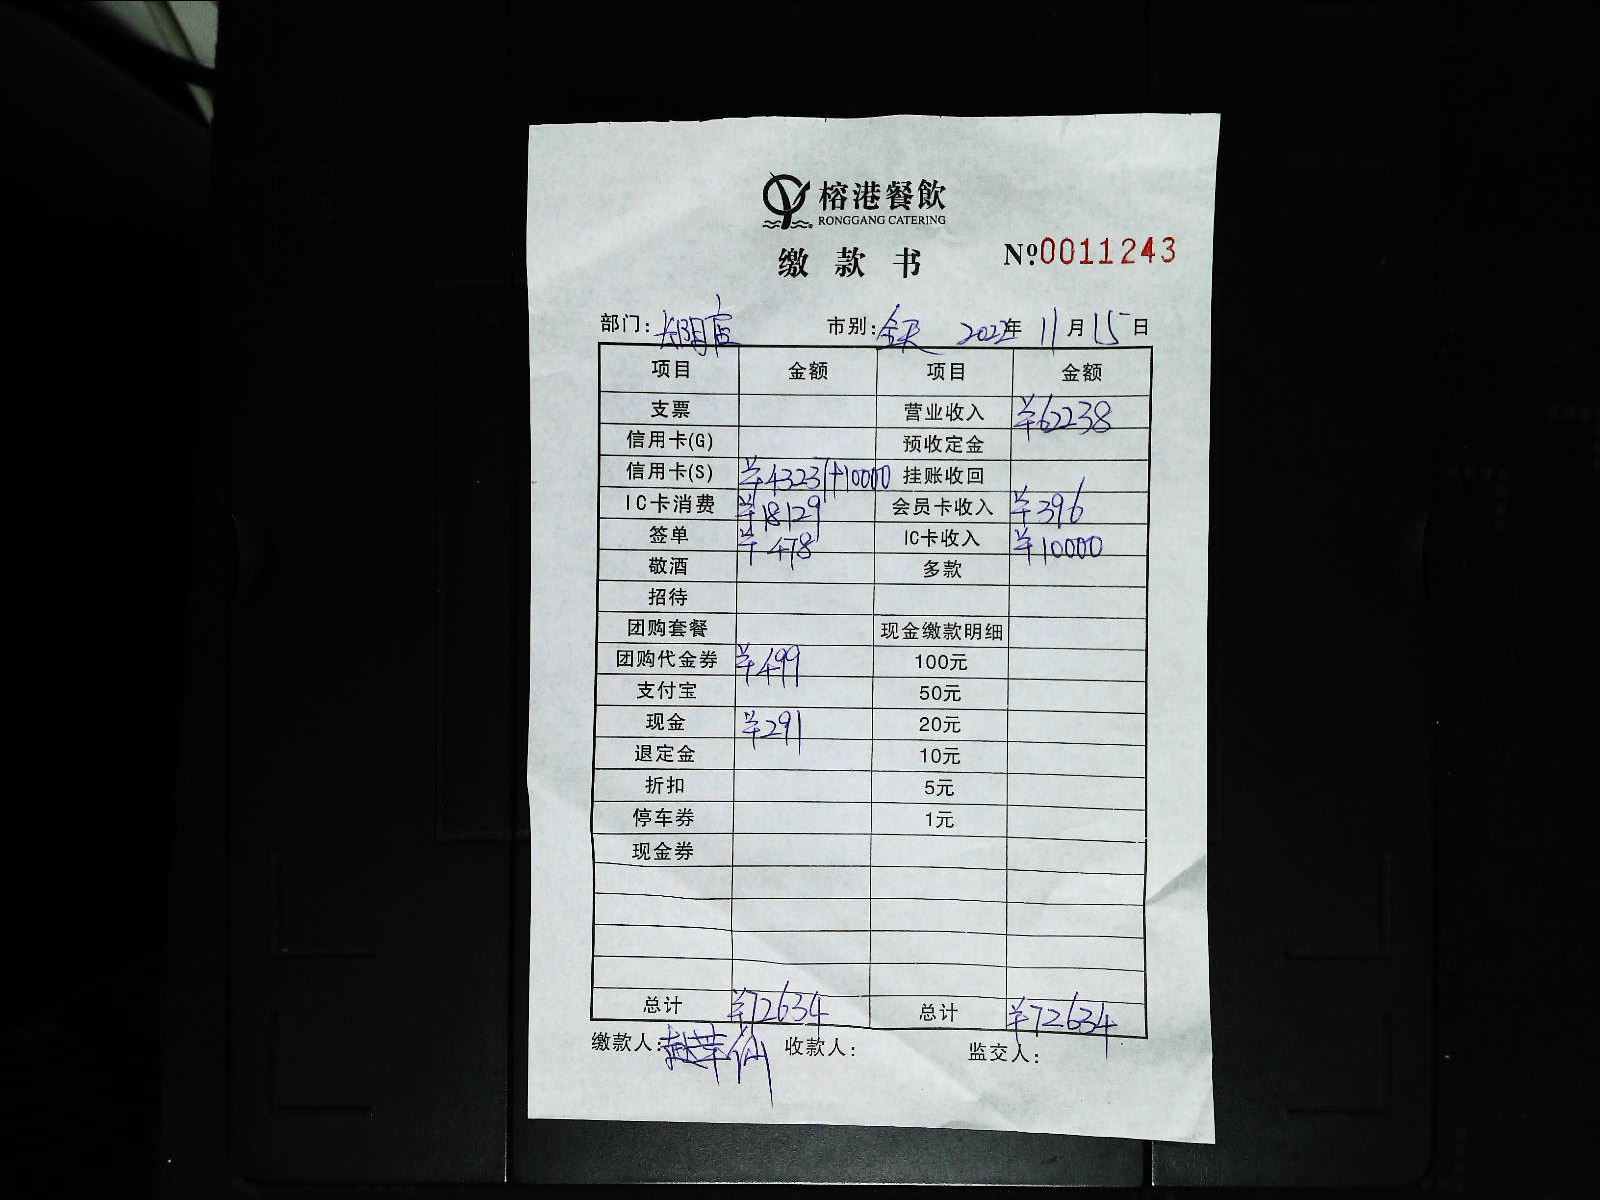 榕港餐飲
RONGGANG CATERING
缴款书 №0011243
部门: 店 市别: 全天 2022年 11月15日
项目 金额 项目 金额
支票 营业收入 ¥62238
信用卡(G) 预收定金
信用卡(S) ¥43237+10000 挂账收回
IC卡消费 ¥18129 会员卡收入 ¥396
签单 ¥478 IC卡收入 ¥10000
敬酒 多款
招待
团购套餐 现金缴款明细
团购代金券 ¥499 100元
支付宝 50元
现金 ¥291 20元
退定金 10元
折扣 5元
停车券 1元
现金券
总计 ¥72634 总计 ¥72634
缴款人: 赵荣仙 收款人: 监交人: